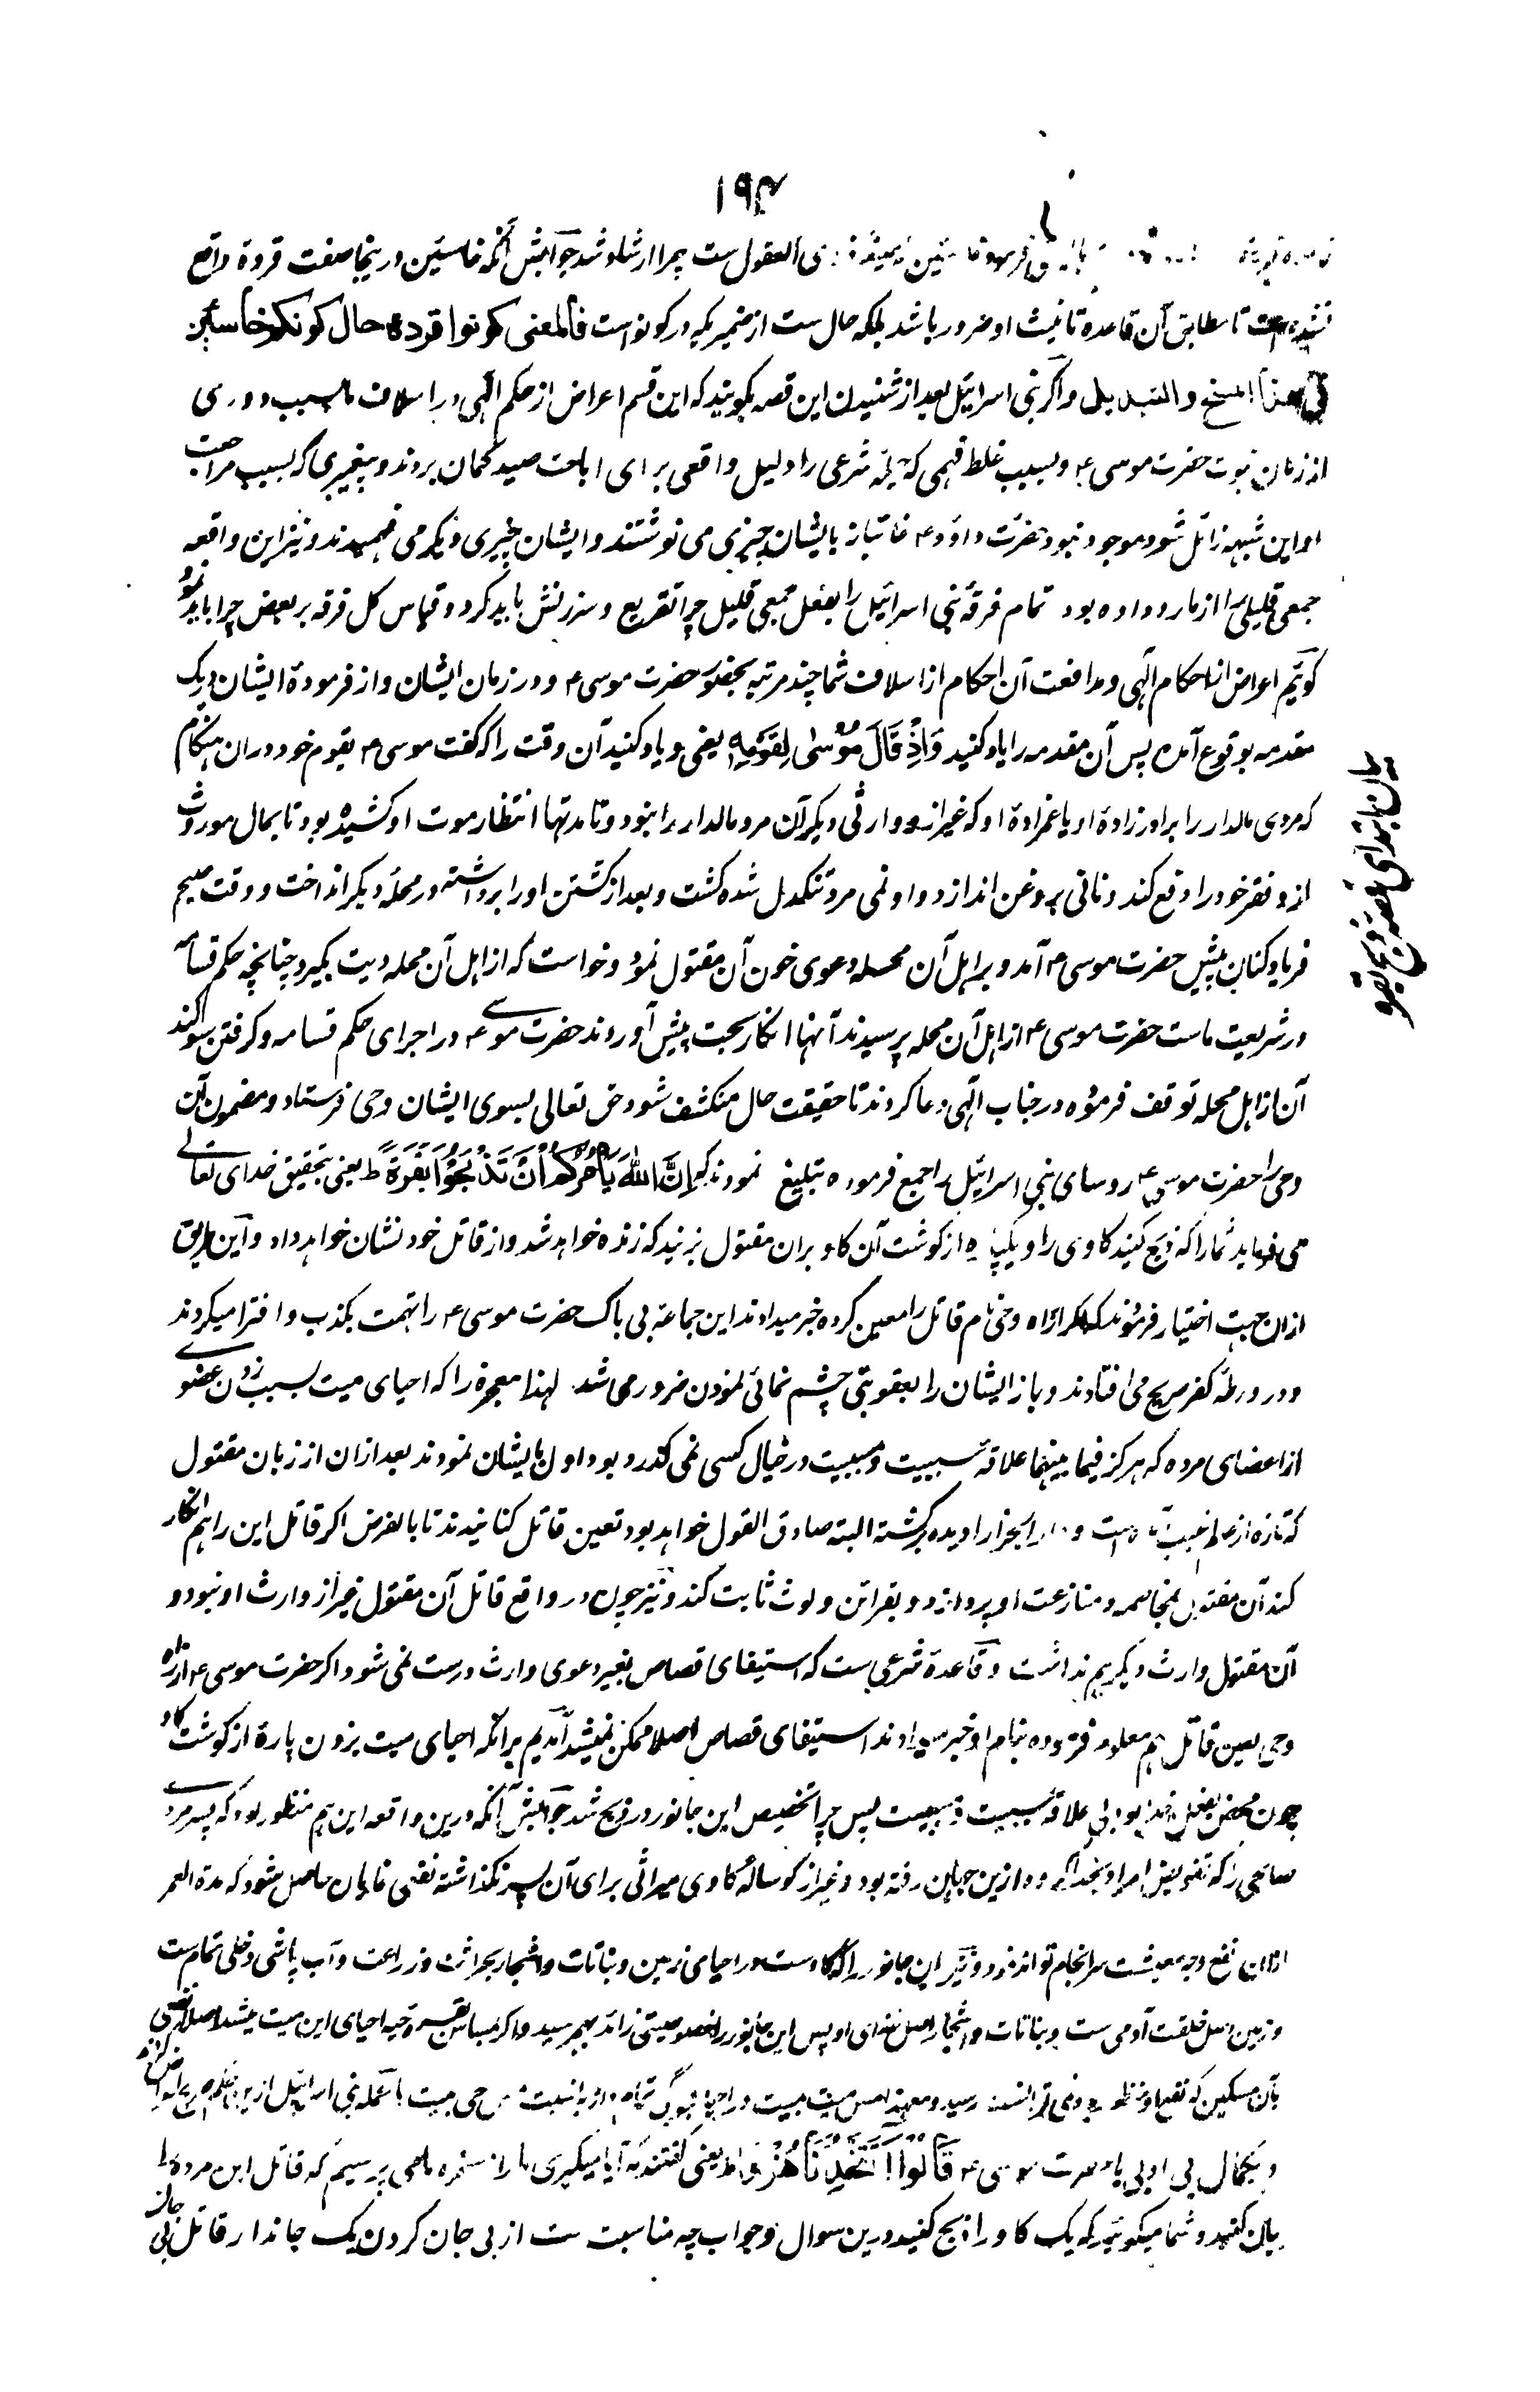 ۱۹۴
ذوی العقول ست چرا ارشاد شد جوابش آنکه خاسئین درینجا صفت قردة واقع
نشده است تا مطابق آن قاعده تانیث او ضرور باشد بلکه حال ست از ضمیریکه در کونواست فالمعنی کونوا قردة حال کونکم خاسئین
فی هذا المسخ والتبدیل و اگر بنی اسرائیل بعد از شنیدن این قصه بگویند که این قسم اعراض از حکم الٰهی در اسلاف ما بسبب دوری
از زمان نبوت حضرت موسی ع و بسبب غلط فهمی که حیلهٔ شرعی را دلیل واقعی برای اباحت صید گمان بردند و پیغمبری که بسبب مراجعت
او این شبهه زائل شود موجود نبود حضرت داؤد ع غائبانه بایشان چیزی می نوشتند و ایشان چیزی دیگر می فهمیدند و نیز این واقعه
جمعی قلیل را از ما رو داده بود تمام فرقهٔ بنی اسرائیل را بفعل جمعی قلیل چرا تقریع و سرزنش باید کرد و قیاس کل فرقه بر بعض چرا باید نمود
گوئیم اعراض از احکام الٰهی و مدافعت آن احکام از اسلاف شما چند مرتبه بحضور حضرت موسی ع و در زمان ایشان و از فرمودهٔ ایشان در یک
مقدمه بوقوع آمده پس آن مقدمه را یاد کنید وَاِذْ قَالَ مُوْسٰی لِقَوْمِهٖ یعنی و یاد کنید آن وقت را که گفت موسی ع بقوم خود دران هنگام
که مردی مالدار را برادرزادهٔ او یا عمزادهٔ او که غیر ازو وارثی دیگر آن مرد مالدار را نبود و تا مدتها انتظار موت او کشیده بود تا بمال موروث
ازو فقر خود را دفع کند و نانی بروغن اندازد و او نمی مرد تنگدل شده کشت و بعد از کشتن او را برداشته در محلهٔ دیگر انداخت و وقت صبح
فریاد کنان پیش حضرت موسی ع آمد و بر اهل آن محله دعوی خون آن مقتول نمود و خواست که از اهل آن محله دیت بگیرد چنانچه حکم قسامه
در شریعت ماست حضرت موسی ع از اهل آن محله پرسیدند آنها انکار بحت پیش آوردند حضرت موسی ع در اجرای حکم قسامه و گرفتن سوگند
آن از اهل محله توقف فرموده در جناب الٰهی دعا کردند تا حقیقت حال منکشف شود حق تعالی بسوی ایشان وحی فرستاد و مضمون آن
وحی را حضرت موسی ع روسای بنی اسرائیل را جمع فرموده تبلیغ نمودند که اِنَّ اللّٰهَ یَأْمُرُكُمْ اَنْ تَذْبَحُوْا بَقَرَةً ط یعنی بتحقیق خدای تعالے
می فرماید شما را که ذبح کنید گاوی را و یکپاره از گوشت آن گاو بران مقتول بزنید که زنده خواهد شد و از قاتل خود نشان خواهد داد و این طریق
ازان جهت اختیار فرمودند که اگر از راه وحی نام قاتل را معین کرده خبر میدادند این جماعهٔ بی باک حضرت موسی ع را تهمت بکذب و افترا میکردند
و در ورطهٔ کفر صریح می افتادند و باز ایشان را بعقوبتی چشم نمائی نمودن ضرور می شد لهذا معجزه را که احیای میت بسبب زدن عضوے
از اعضای مرده که هرگز فیما بینهما علاقهٔ سببیت و مسببیت در خیال کسی نمی گذرد بود اول بایشان نمودند بعد ازان از زبان مقتول
که تازه از عالم غیب آمده است و دار الجزا را دیده برگشته البته صادق القول خواهد بود تعین قاتل کنانیدند تا بالفرض اگر قاتل این را هم انکار
کند آن مقتول بمخاصمه و منازعت او پردازد و بقرائن و لوث ثابت کند و نیز چون در واقع قاتل آن مقتول غیر از وارث او نبود و
آن مقتول وارث دیگر هم نداشت و قاعدهٔ شرعی ست که استیفای قصاص بغیر دعوی وارث درست نمی شود اگر حضرت موسی ع از راه
وحی تعین قاتل هم معلوم فرموده بنام او خبر میدادند استیفای قصاص اصلا ممکن نمیشد آمدیم برآنکه احیای میت بزدن پارهٔ از گوشت گاو
چون محض بفعل خدا بود بی علاقهٔ سببیت و مسببیت پس چرا تخصیص این جانور در ذبح شد جوابش آنکه درین واقعه این هم منظور بود که پسر مردے
صالحی را که تفویض امر او بخدا کرده ازین جهان رفته بود و غیر از گوسالهٔ گاوی میراثی برای آن پسر نگذاشته نفعی نمایان حاصل شود که مدة العمر
ازان نفع وجه معیشت سرانجام تواند نمود و نیز این جانور را که گاو ست در احیای زمین و نباتات و اشجار بحراثت و زراعت و آب پاشی دخلی تمام ست
و زمین اصل خلقت آدمی ست و نباتات و اشجار اصل غذای او پس این جانور را خصوصیتی زائد بهم رسید و اگر احیای این میت میشد اصلا نفعی
بآن مسکین که نفع او منظور بود نمی رسید بنی اسرائیل از
و بکمال بی ادبی با حضرت موسی ع قَالُوْا اَتَتَّخِذُنَا هُزُوًا ط یعنی گفتند که آیا میگیری ما را مسخره ما می پرسیم که قاتل این مرده را
بیان کنید و شما میگوئید که یک گاو را ذبح کنید درین سوال و جواب چه مناسبت ست از بی جان کردن یک جاندار قاتل بی جان
بیان ابتدای قصه ذبح بقره